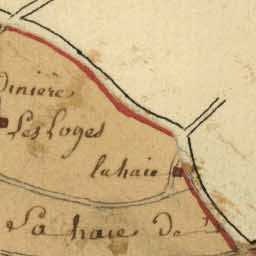 Dinière
Les Loges
la haie
La haie de